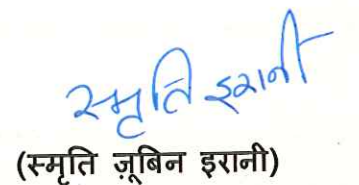 स्मृति इरानी
(स्मृति ज़ूबिन इरानी)